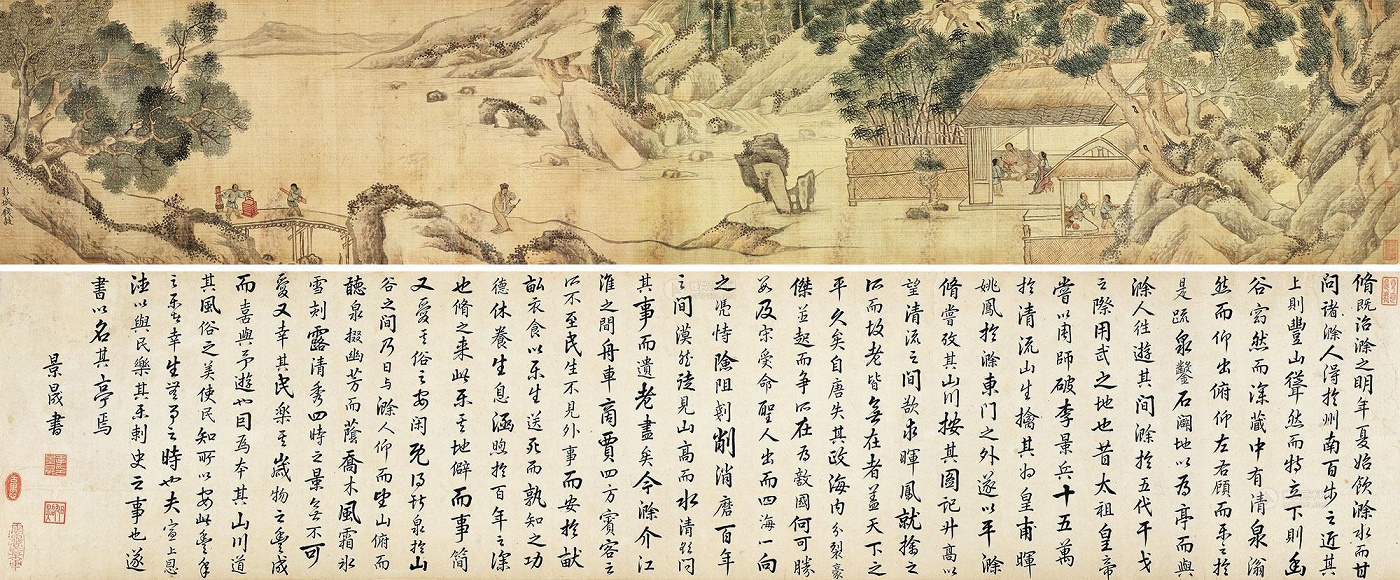 彭城錢穀
脩既治滁之明年夏始飲滁水而甘
問諸滁人得扵州南百步之近其
上則豐山聳然而特立下則幽
谷窈然而深藏中有清泉滃
然而仰出俯仰左右顧而樂之扵
是疏泉鑿石闢地以為亭而與
滁人往遊其間滁扵五代干戈
之際用武之地也昔太祖皇帝
嘗以周師破李景兵十五萬
扵清流山生擒其將皇甫暉
姚鳳扵滁東門之外遂以平滁
脩嘗攷其山川按其圖記升高以
望清流之間欲求暉鳳就擒之
所而故老皆無在者蓋天下之
平久矣自唐失其政海內分裂豪
傑並起而爭所在為敵國何可勝
數及宋受命聖人出而四海一向
之憑恃險阻剗削消磨百年
之間漠然徒見山高而水清欲問
其事而遺老盡矣今滁介江
淮之間舟車商賈四方賓客之
所不至民生不見外事而安扵畎
畝衣食以樂生送死而孰知之功
德休養生息涵煦扵百年之深
也脩之来此樂其地僻而事簡
又愛其俗之安閑既得斯泉扵山
谷之間乃日與滁人仰而望山俯而
聽泉掇幽芳而蔭喬木風霜冰
雪刻露清秀四時之景無不可
愛又幸其民樂其歲物之豐成
而喜與予遊也因為本其山川道
其風俗之美使民知所以安此豐年
之樂者幸生無事之時也夫宣上恩
德以與民樂其樂刺史之事也遂
書以名其亭焉
景晟書